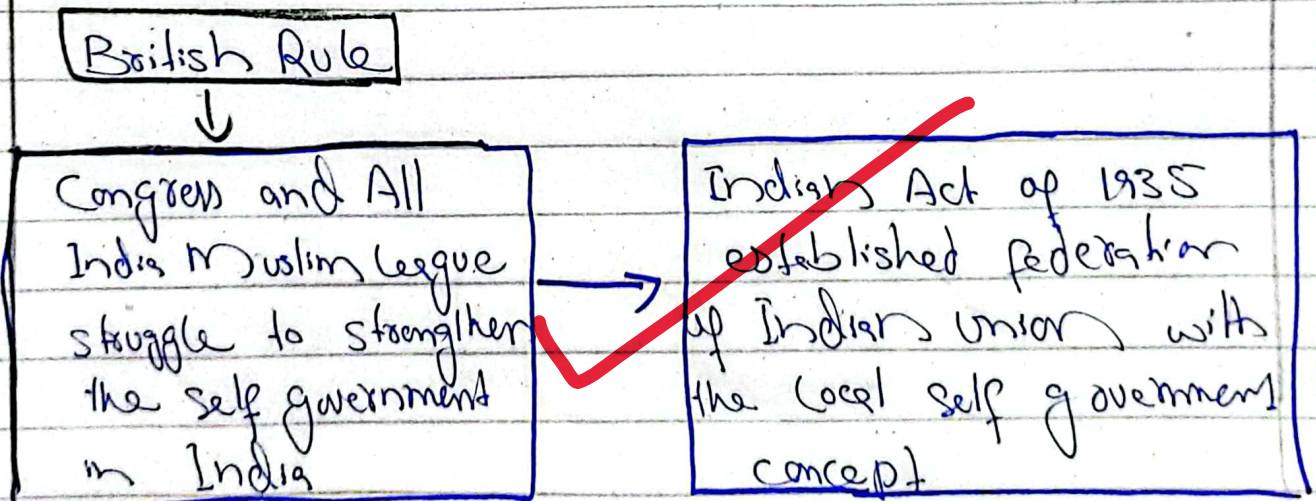 British Rule
Congress and All
India Muslim league
struggle to strengthen
the self government
in India
Indian Act of 1935
established federation
of Indian union with
the local self government
concept